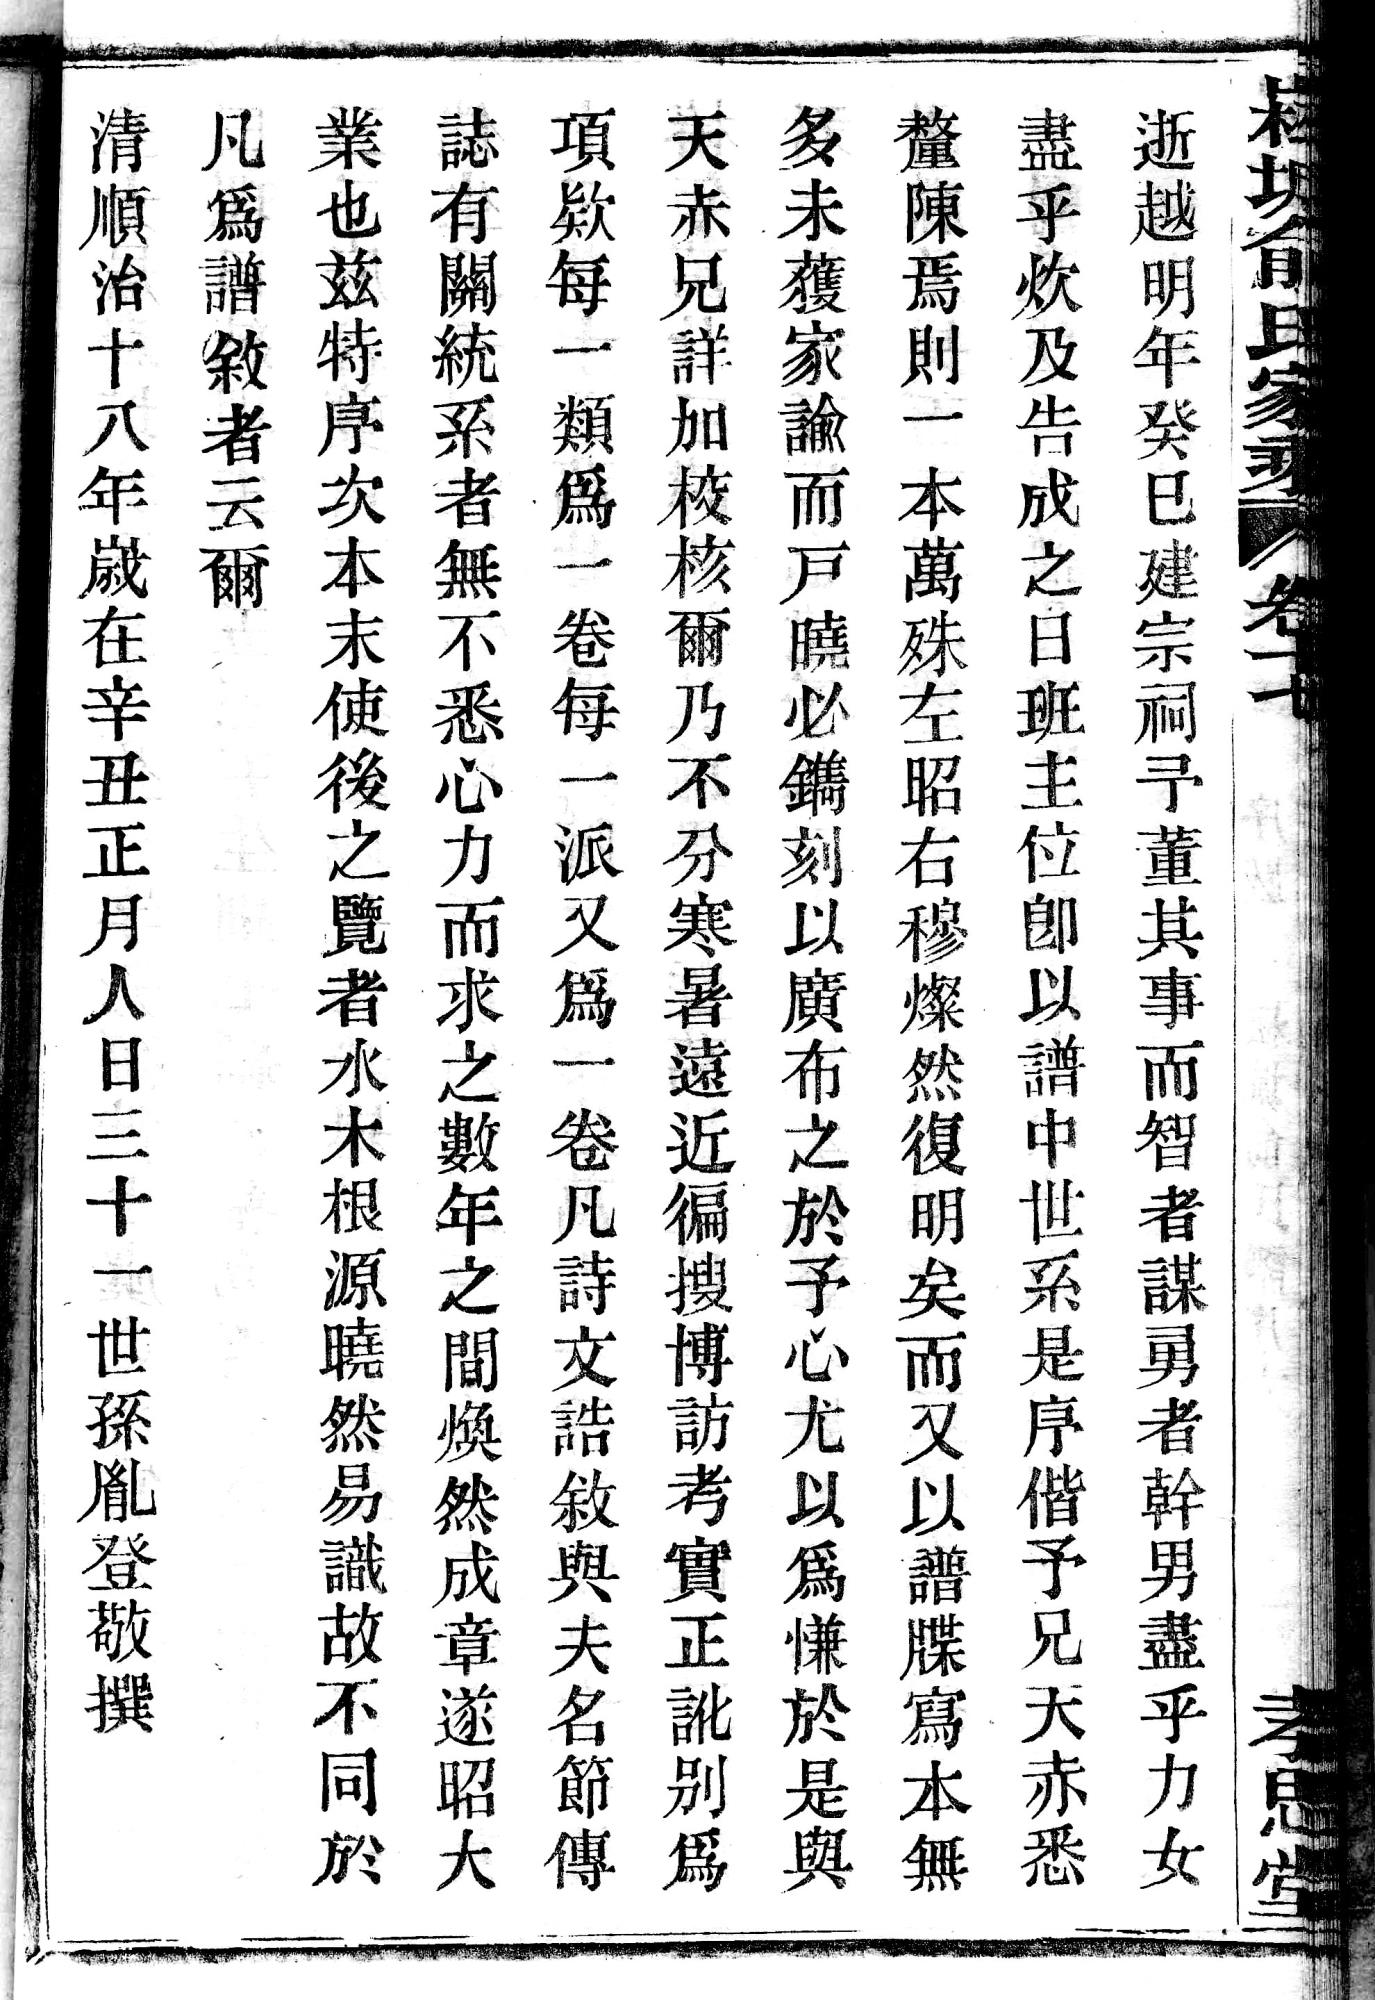 逝越明年癸巳建宗祠予董其事而智者謀勇者幹男盡乎力女
盡乎炊及告成之日班主位卽以譜中世系是序偕予兄天赤悉
釐陳焉則一本萬殊左昭右穆燦然復明矣而又以譜牒寫本無
多未獲家諭而戸曉必鐫刻以廣布之於予心尤以爲慊於是與
天赤兄詳加校核爾乃不分寒暑遠近徧搜博訪考實正訛別爲
項欵每一類爲一卷每一派又爲一卷凡詩文誥敘與夫名節傳
誌有關統系者無不悉心力而求之數年之間煥然成章遂昭大
業也茲特序次本末使後之覽者水木根源曉然易識故不同於
凡爲譜敘者云爾
清順治十八年歲在辛丑正月人日三十一世孫胤登敬撰
俞氏家乘 卷十七 孝思堂